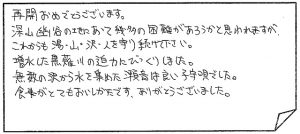 再開おめでとうございます。
深山幽谷の地にあって幾多の困難があろうかと思われますが、
これからも湯・山・沢・人を守り続けて下さい。
増水した黒薙川の迫力にびっくりしました。
無数の沢から水を集めた瀬音は良い子守唄でした。
食事がとてもおいしかったです、ありがとうございました。